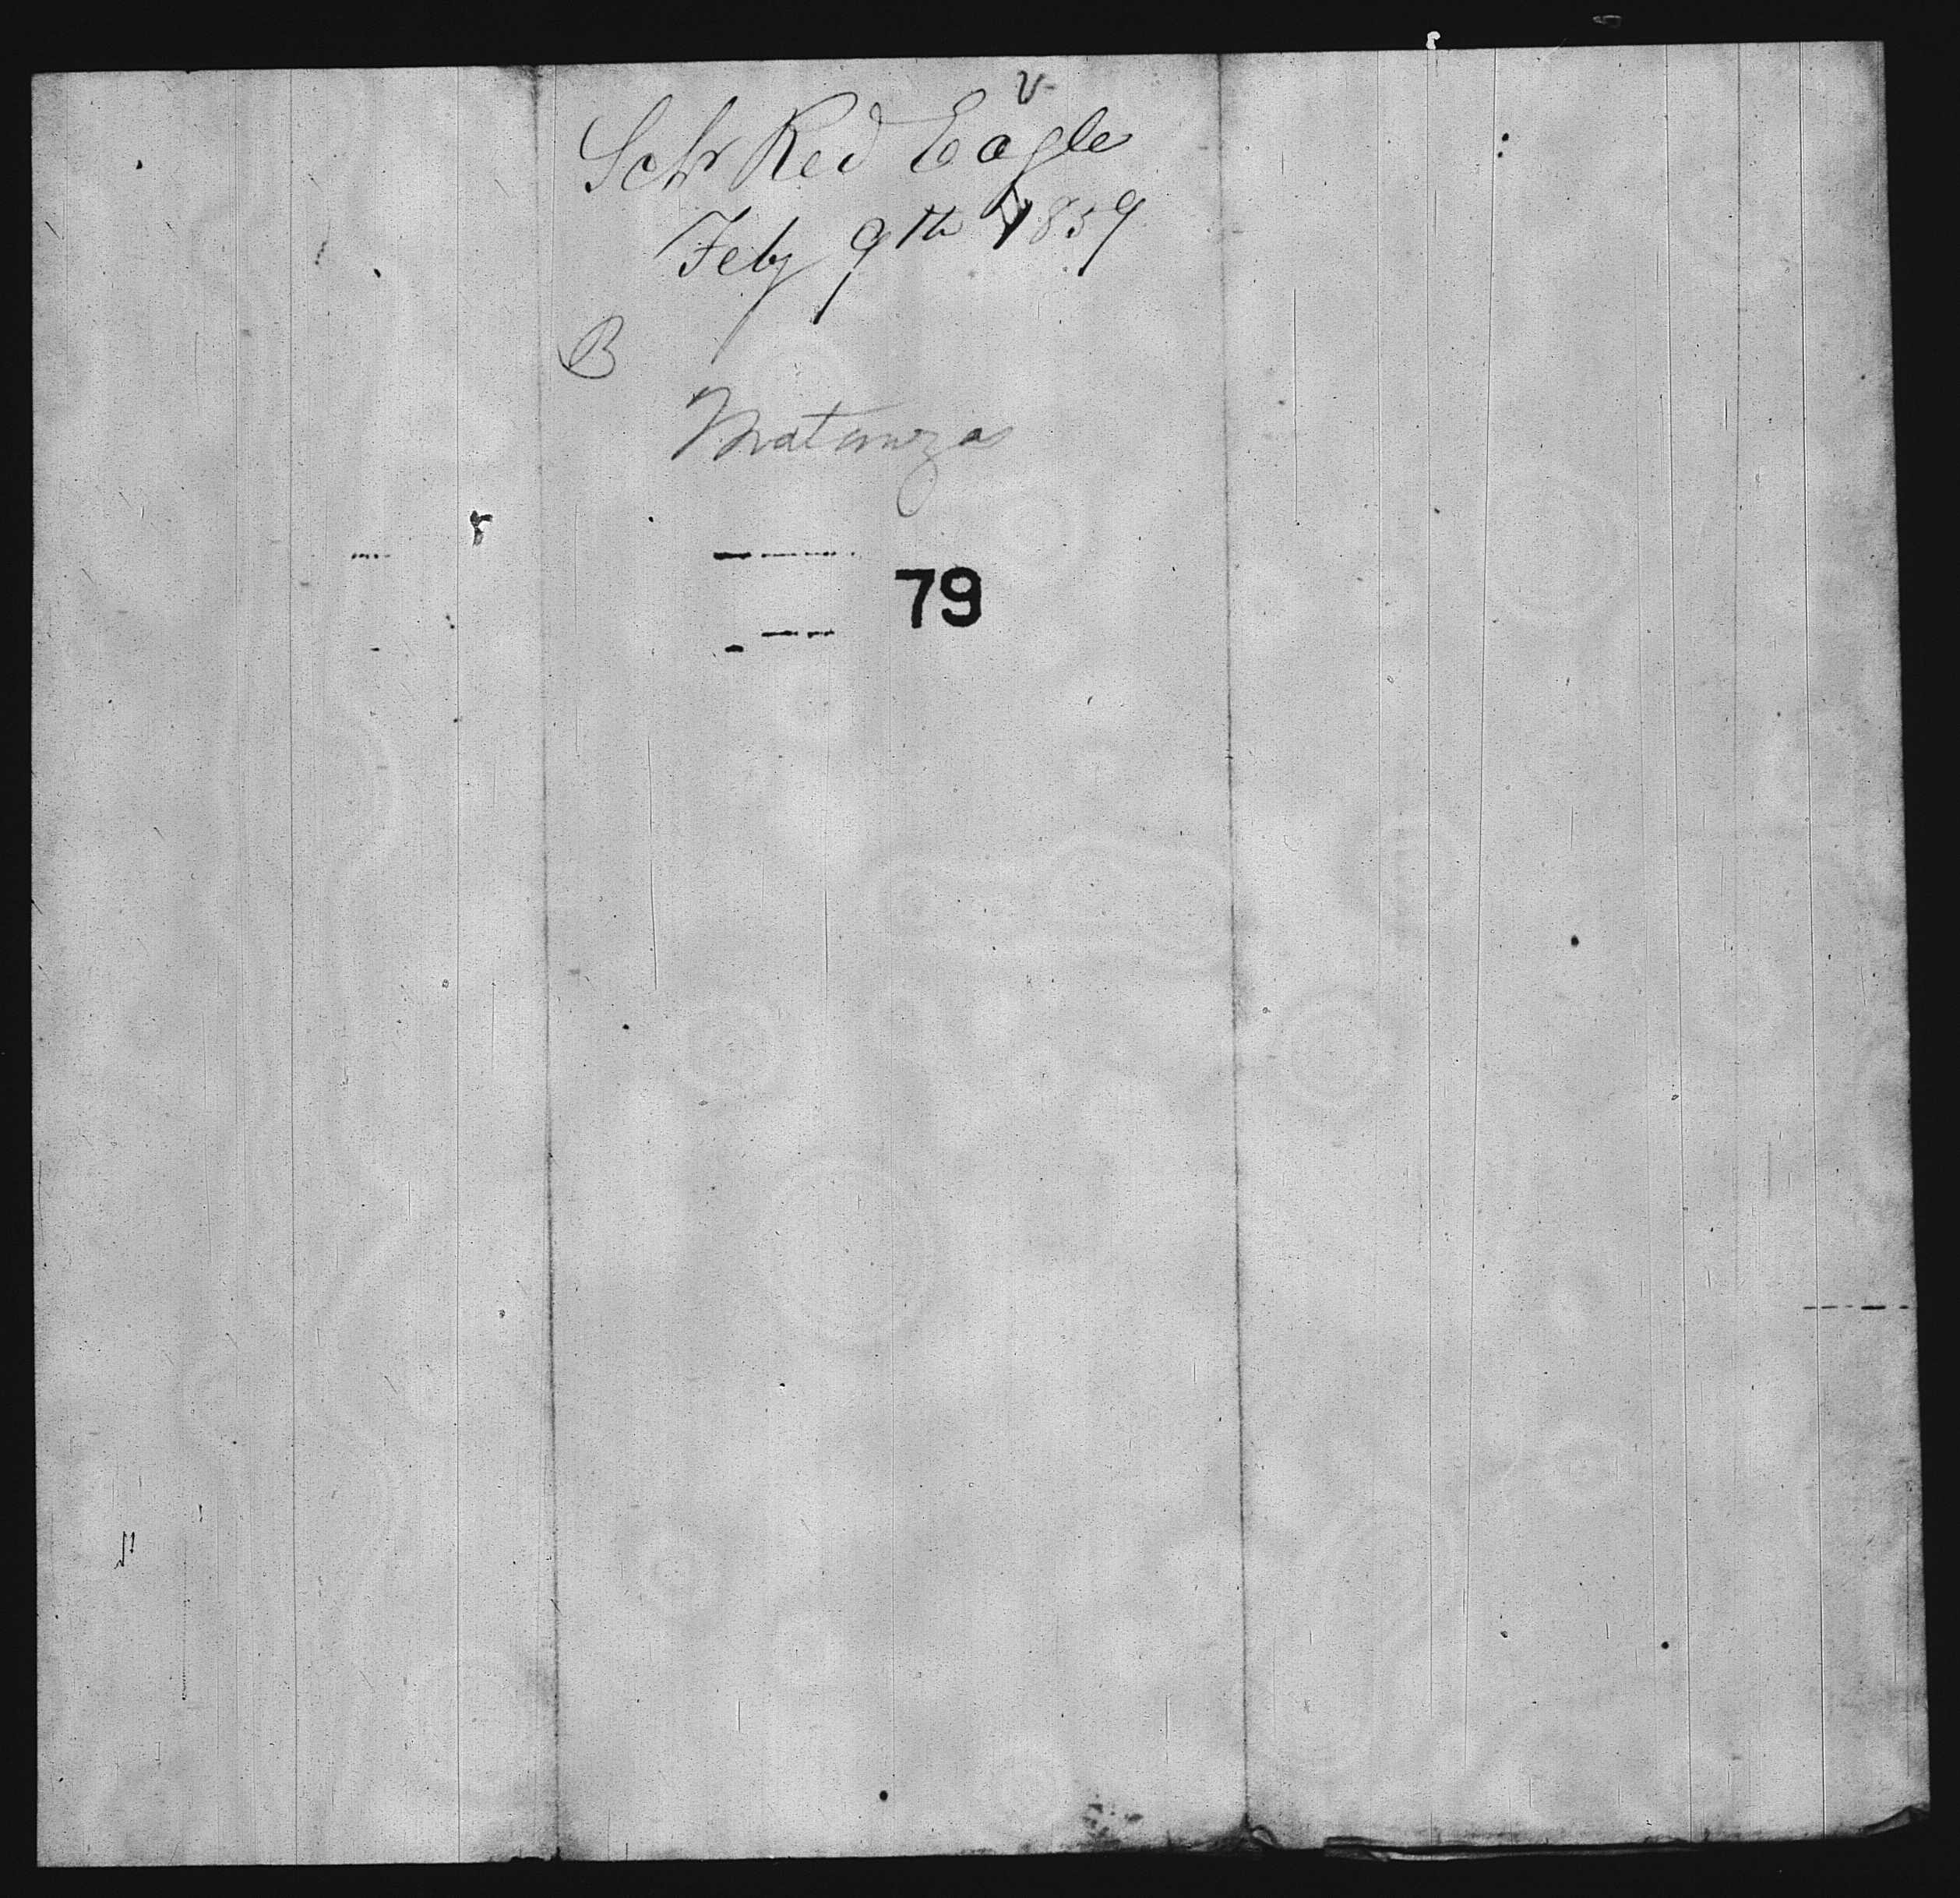 v
Schr Red Eagle
Feby 9th 1859
B
Matanzas
79